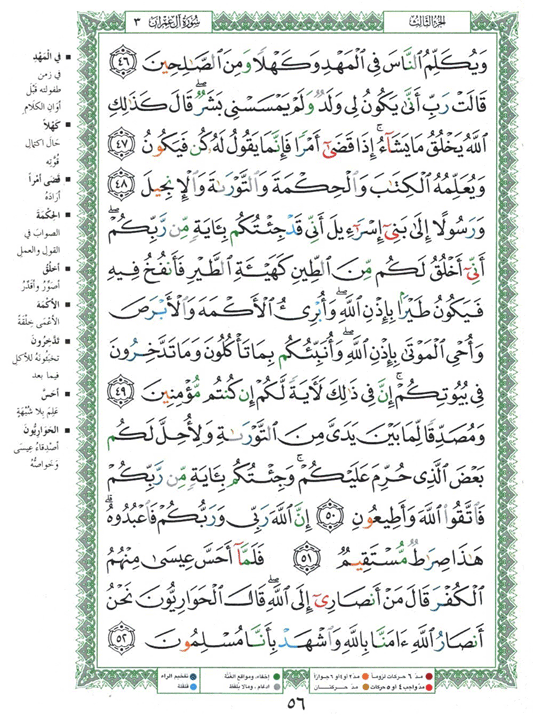 الجزء الثالث
سورة آل عمران ٣
وَيُكَلِّمُ النَّاسَ فِي الْمَهْدِ وَكَهْلًا وَمِنَ الصَّٰلِحِينَ ٤٦
قَالَتْ رَبِّ أَنَّىٰ يَكُونُ لِي وَلَدٌ وَلَمْ يَمْسَسْنِي بَشَرٌ ۖ قَالَ كَذَٰلِكِ
اللَّهُ يَخْلُقُ مَا يَشَآءُ ۚ إِذَا قَضَىٰٓ أَمْرًا فَإِنَّمَا يَقُولُ لَهُۥ كُن فَيَكُونُ ٤٧
وَيُعَلِّمُهُ الْكِتَٰبَ وَالْحِكْمَةَ وَالتَّوْرَىٰةَ وَالْإِنجِيلَ ٤٨
وَرَسُولًا إِلَىٰ بَنِيٓ إِسْرَٰٓءِيلَ أَنِّي قَدْ جِئْتُكُم بِـَٔايَةٍ مِّن رَّبِّكُمْ ۖ
أَنِّيٓ أَخْلُقُ لَكُم مِّنَ الطِّينِ كَهَيْـَٔةِ الطَّيْرِ فَأَنفُخُ فِيهِ
فَيَكُونُ طَيْرًۢا بِإِذْنِ اللَّهِ ۖ وَأُبْرِئُ الْأَكْمَهَ وَالْأَبْرَصَ
وَأُحْيِ الْمَوْتَىٰ بِإِذْنِ اللَّهِ ۖ وَأُنَبِّئُكُم بِمَا تَأْكُلُونَ وَمَا تَدَّخِرُونَ
فِي بُيُوتِكُمْ ۚ إِنَّ فِي ذَٰلِكَ لَـَٔايَةً لَّكُمْ إِن كُنتُم مُّؤْمِنِينَ ٤٩
وَمُصَدِّقًا لِّمَا بَيْنَ يَدَيَّ مِنَ التَّوْرَىٰةِ وَلِأُحِلَّ لَكُم
بَعْضَ الَّذِي حُرِّمَ عَلَيْكُمْ ۚ وَجِئْتُكُم بِـَٔايَةٍ مِّن رَّبِّكُمْ
فَاتَّقُوا اللَّهَ وَأَطِيعُونِ ٥٠ إِنَّ اللَّهَ رَبِّي وَرَبُّكُمْ فَاعْبُدُوهُ ۗ
هَٰذَا صِرَٰطٌ مُّسْتَقِيمٌ ٥١ فَلَمَّآ أَحَسَّ عِيسَىٰ مِنْهُمُ
الْكُفْرَ قَالَ مَنْ أَنصَارِيٓ إِلَى اللَّهِ ۖ قَالَ الْحَوَارِيُّونَ نَحْنُ
أَنصَارُ اللَّهِ ءَامَنَّا بِاللَّهِ وَاشْهَدْ بِأَنَّا مُسْلِمُونَ ٥٢
في الْمَهْدِ
في زمن
طفولته قَبْلَ
أوان الكلام
كَهْلاً
حال اكتمال
قُوَّتِه
قضى أمراً
أرَادَهُ
الحِكْمَةَ
الصواب في
القول والعمل
أخلُقُ
أصَوِّرُ وأقَدِّرُ
الأكْمَهَ
الأعْمَى خِلْقَةً
تَدَّخِرُونَ
تخبَئُونَهُ للأكل
فيما بعد
أحَسَّ
عَلِمَ بِلا شُبْهَةٍ
الحَوَارِيُّونَ
أصدِقاءُ عِيسَى
وَخَواصُّهُ
مدّ ٦ حركات لزوماً
مدّ ٢ أو ٤ أو ٦ جوازاً
إخفاء، ومواقع الغُنَّة
تفخيم الراء
مدّ واجب ٤ أو ٥ حركات
مدّ حركتان
إدغام، وما لا يُلفَظ
قلقلة
٥٦